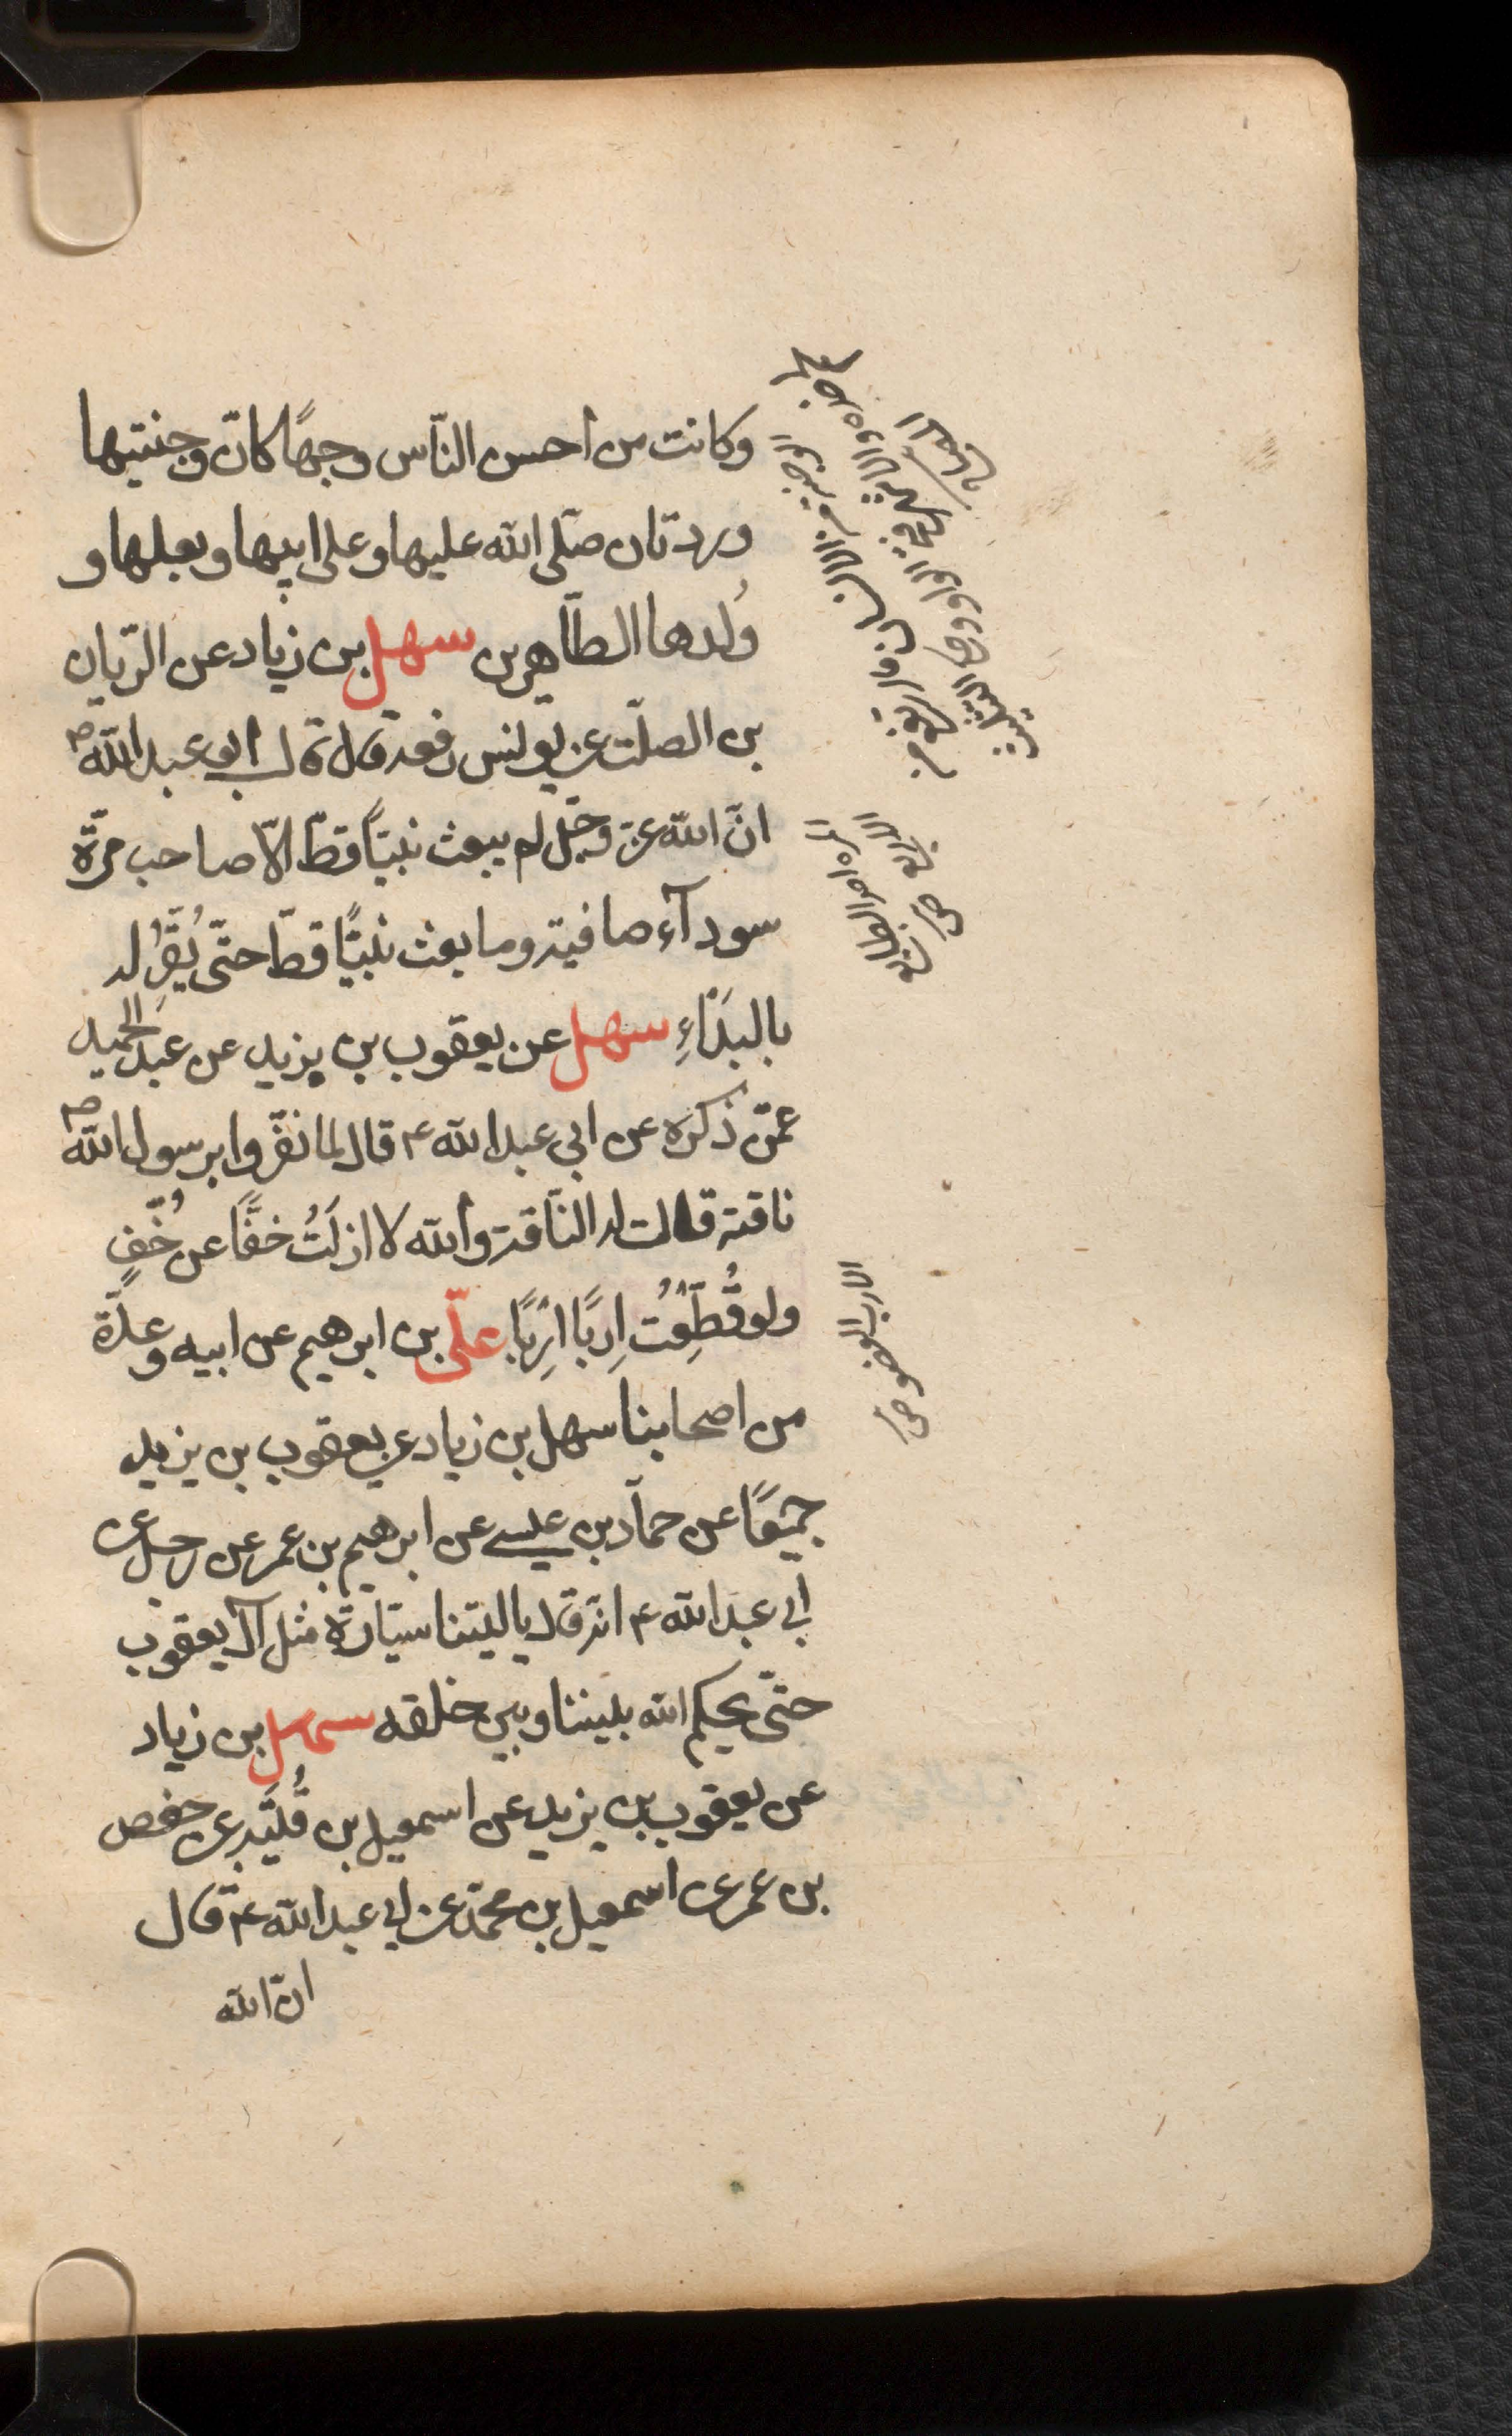 وكانت من احسن النّاس وجهًا كانّ وجنتيها
وردتان صلّى الله عليها وعلى ابيها وبعلها و
وُلدها الطّاهرين سهل بن زياد عن الرّيان
بن الصلت عن يونس رفعه قال قال ابو عبد الله ؏
انّ الله عزّ وجلّ لم يبعث نبيًّا قطّ الّا صاحب مرّة
سودآء صافية وما بعث نبيًّا قطّ حتّى يُقِرّ له
بالبَدَاءِ سهل عن يعقوب بن يزيد عن عبد الحميد
عمّن ذكره عن ابي عبد الله ع قال لما نفّروا برسول الله ص
ناقته قالت له النّاقة والله لا ازلتُ خفًّا عن خُفٍّ
ولو قُطِّعْتُ اِربًا اِربًا علىّ بن ابرهيم عن ابيه وعدّة
من اصحابنا سهل بن زياد عن يعقوب بن يزيد
جميعًا عن حمّاد بن عيسى عن ابرهيم بن عمر عن رجل عن
ابي عبد الله ع انّه قال يا ليتنا سيّارة مثل آل يعقوب
حتّى يحكم الله بيننا وبين خلقه سهل بن زياد
عن يعقوب بن يزيد عن اسمعيل بن قُتَيْبة عن حفص
بن عمر عن اسمعيل بن محمّد عن ابي عبد الله ع قال
انّ الله
الارب العضو ص